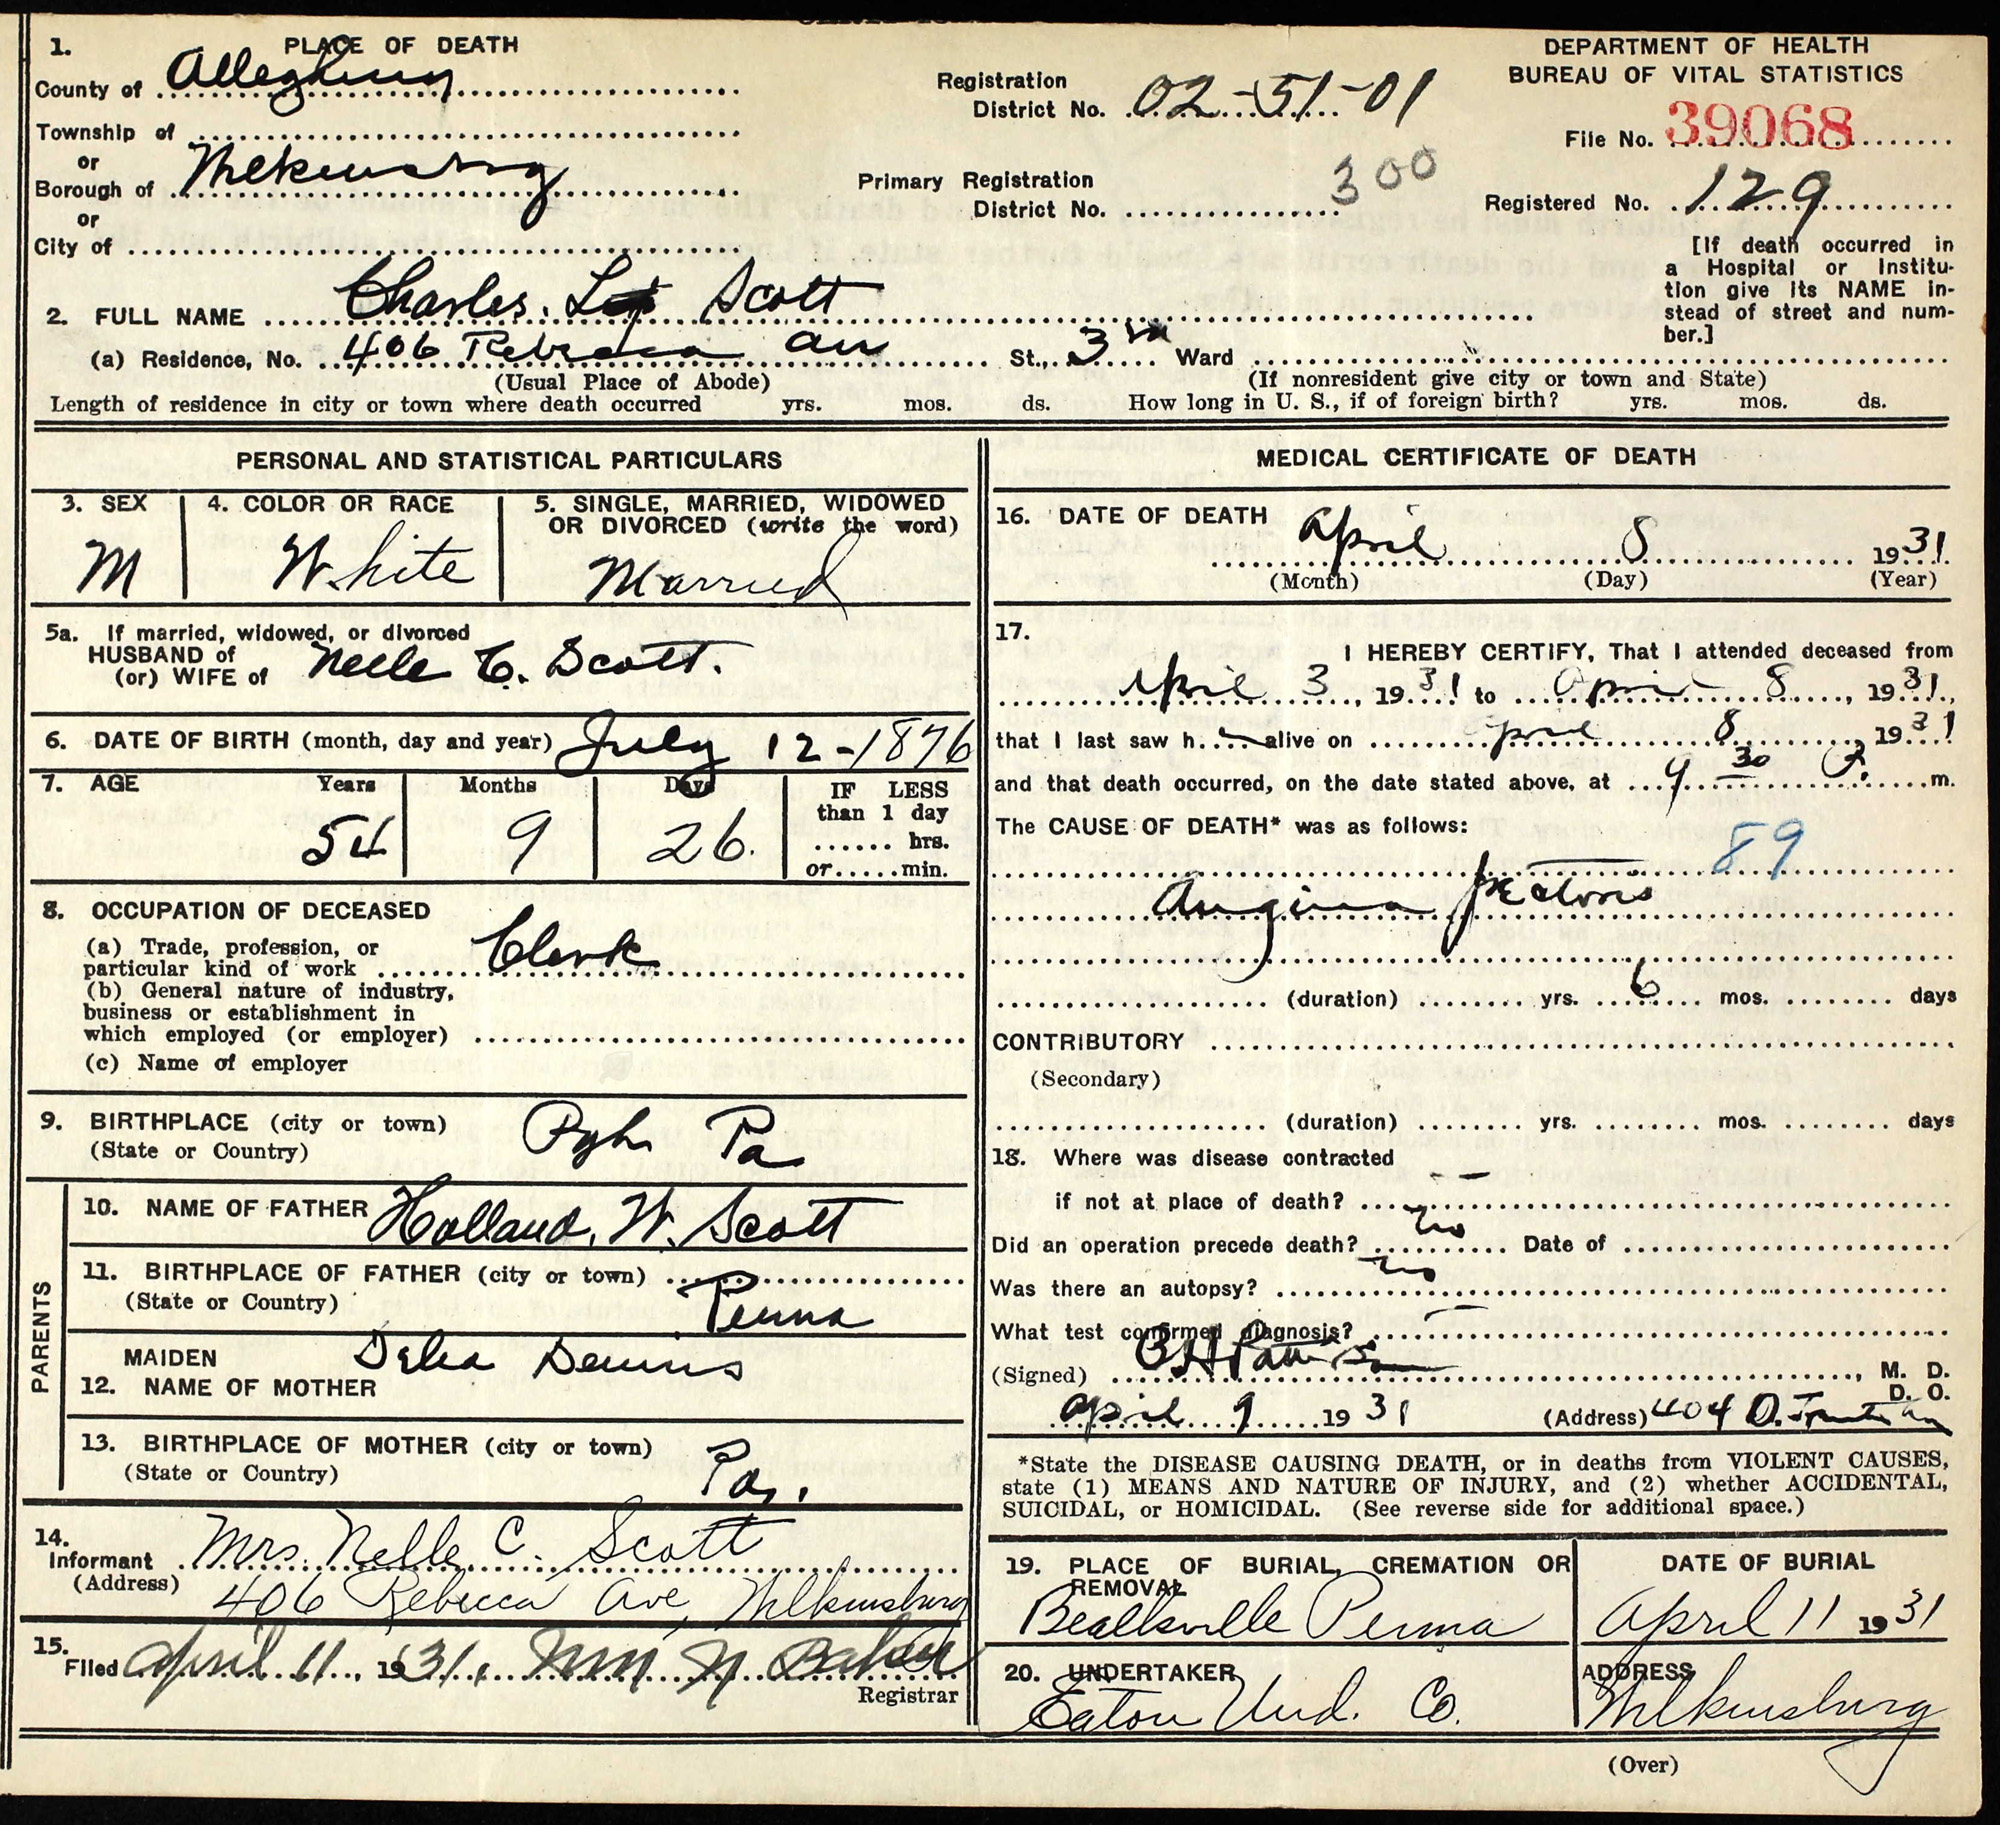 1. PLACE OF DEATH
County of Allegheny
Township of
or
Borough of Wilkinsburg
or
City of
Registration
District No. 02-51-01
Primary Registration
District No. 300
DEPARTMENT OF HEALTH
BUREAU OF VITAL STATISTICS
File No. 39068
Registered No. 129
[If death occurred in
a Hospital or Institu-
tion give its NAME in-
stead of street and num-
ber.]
2. FULL NAME Charles. Scott
(a) Residence, No. 406 Rebecca av St., 3 Ward
(Usual Place of Abode) (If nonresident give city or town and State)
Length of residence in city or town where death occurred yrs. mos. ds. How long in U. S., if of foreign birth? yrs. mos. ds.
PERSONAL AND STATISTICAL PARTICULARS
3. SEX
M
4. COLOR OR RACE
White
5. SINGLE, MARRIED, WIDOWED
OR DIVORCED (write the word)
Married
5a. If married, widowed, or divorced
HUSBAND of
(or) WIFE of Nelle C. Scott.
6. DATE OF BIRTH (month, day and year) July 12-1876
7. AGE Years Months Days
54 9 26.
IF LESS
than 1 day
...... hrs.
or......min.
8. OCCUPATION OF DECEASED
(a) Trade, profession, or
particular kind of work Clerk
(b) General nature of industry,
business or establishment in
which employed (or employer)
(c) Name of employer
9. BIRTHPLACE (city or town) Pgh Pa
(State or Country)
PARENTS
10. NAME OF FATHER Holland. W. Scott
11. BIRTHPLACE OF FATHER (city or town)
(State or Country) Penna
MAIDEN
12. NAME OF MOTHER Delia Dennis
13. BIRTHPLACE OF MOTHER (city or town)
(State or Country) Pa.
14.
Informant Mrs. Nelle C. Scott
(Address) 406 Rebecca Ave, Wilkinsburg
15.
Filed April 11, 1931, Wm N Baker
Registrar
MEDICAL CERTIFICATE OF DEATH
16. DATE OF DEATH April 8 1931
(Month) (Day) (Year)
17.
I HEREBY CERTIFY, That I attended deceased from
April 3, 1931 to April 8, 1931,
that I last saw h.... alive on April 8, 1931
and that death occurred, on the date stated above, at 9 30 P. m.
The CAUSE OF DEATH* was as follows:
89
Angina pectoris
(duration) yrs. 6 mos. days
CONTRIBUTORY
(Secondary)
(duration) yrs. mos. days
18. Where was disease contracted
if not at place of death? --
Did an operation precede death? no Date of
Was there an autopsy? no
What test confirmed diagnosis? -
(Signed) M. D.
D. O.
April 9 1931 (Address) 404
*State the DISEASE CAUSING DEATH, or in deaths from VIOLENT CAUSES,
state (1) MEANS AND NATURE OF INJURY, and (2) whether ACCIDENTAL,
SUICIDAL, or HOMICIDAL. (See reverse side for additional space.)
19. PLACE OF BURIAL, CREMATION OR
REMOVAL
Beallsville Penna
DATE OF BURIAL
April 11 1931
20. UNDERTAKER
Eaton Und. Co.
ADDRESS
Wilkinsburg
(Over)